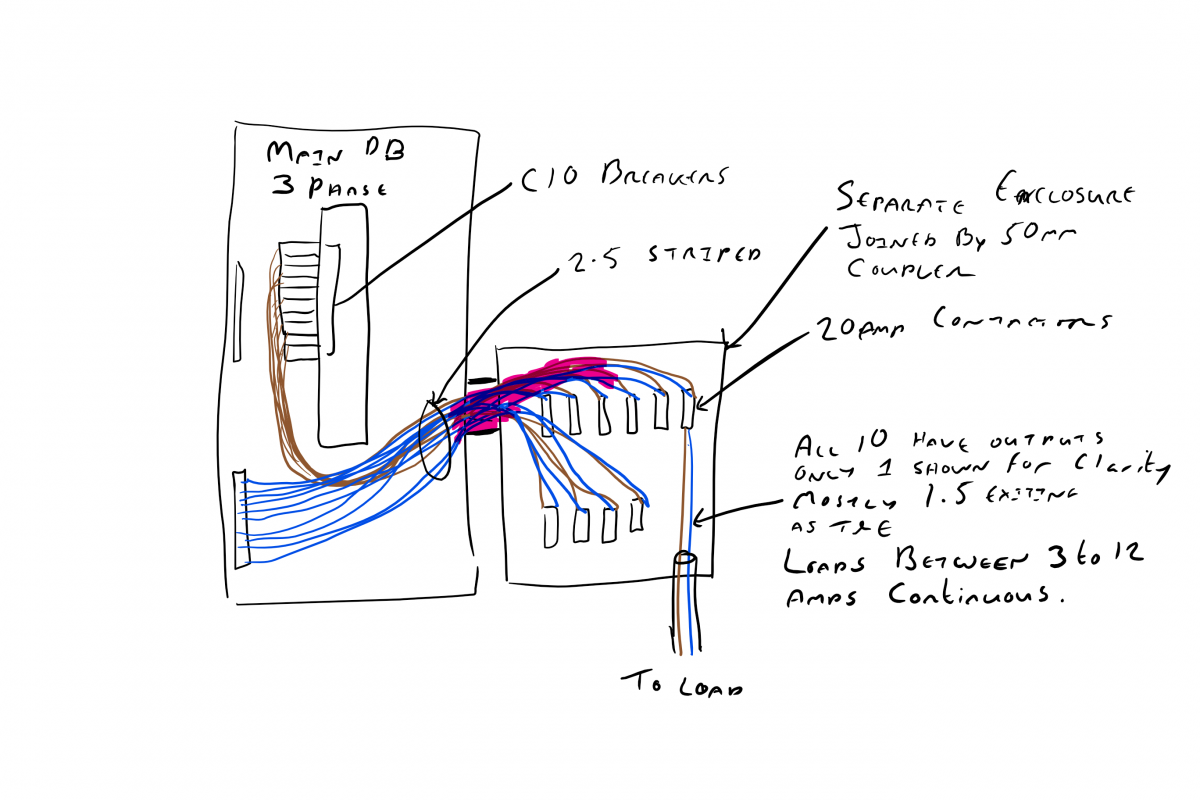 MAIN DB
3 PHASE
C10 BREAKERS
2.5 STRIPED
SEPARATE ENCLOSURE
JOINED BY 50mm
COUPLER
20AMP CONTACTORS
ALL 10 HAVE OUTPUTS
ONLY 1 SHOWN FOR Clarity
MOSTLY 1.5 EXITING
AS T&E
LOADS BETWEEN 3 to 12
AMPS Continuous.
TO LOAD